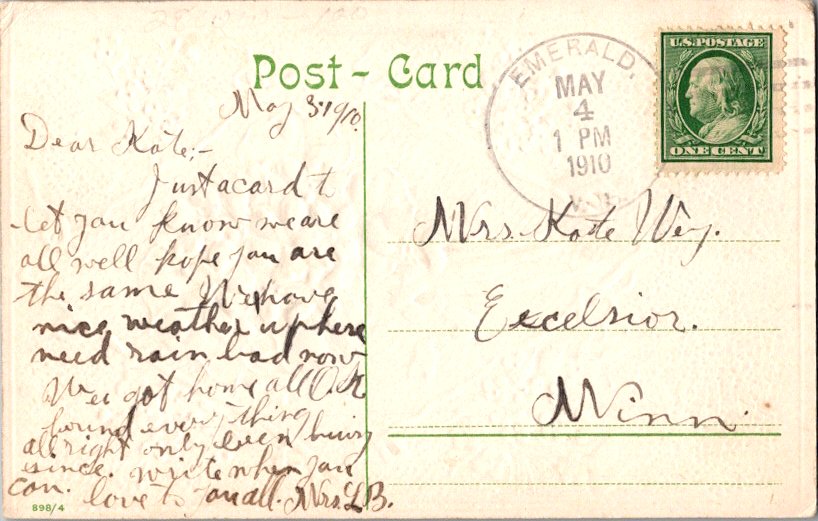 Post - Card
May 3, 1910.
Dear Kate;-
Just a card t
let you know we are
all well hope you are
the same We have
nice weather up here
need rain bad now
We got home all O.K
found every thing
all right only been busy
since. write when you
can. love to you all. Mrs. L B.
898/4
EMERALD,
MAY
4
1 PM
1910
U.S. POSTAGE
ONE CENT
Mrs. Kate Wey.
Excelsior.
Minn.